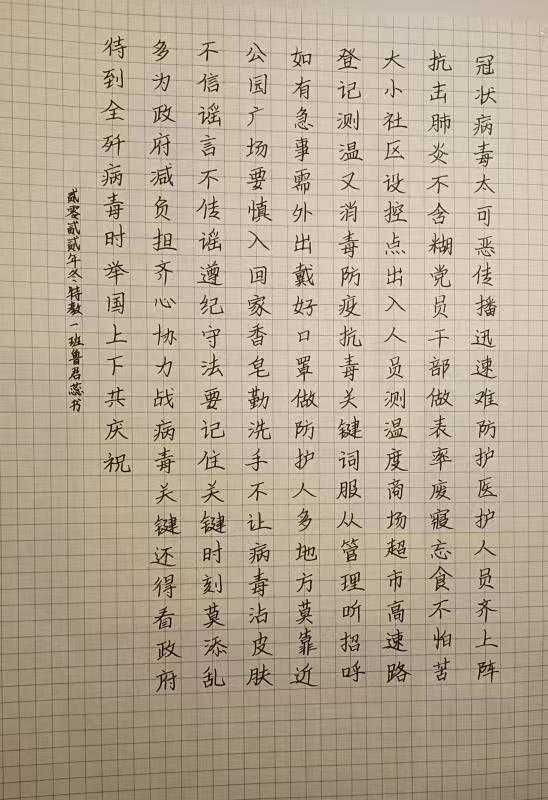 冠状病毒太可恶传播迅速难防护医护人员齐上阵
抗击肺炎不含糊党员干部做表率废寝忘食不怕苦
大小社区设控点出入人员测温度商场超市高速路
登记测温又消毒防疫抗毒关键词服从管理听招呼
如有急事需外出戴好口罩做防护人多地方莫靠近
公园广场要慎入回家香皂勤洗手不让病毒沾皮肤
不信谣言不传谣遵纪守法要记住关键时刻莫添乱
多为政府减负担齐心协力战病毒关键还得看政府
待到全歼病毒时举国上下共庆祝
贰零贰贰年冬特教一班鲁君蕊书